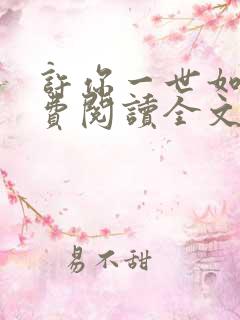 許你一世如
費閱讀全文
易不甜